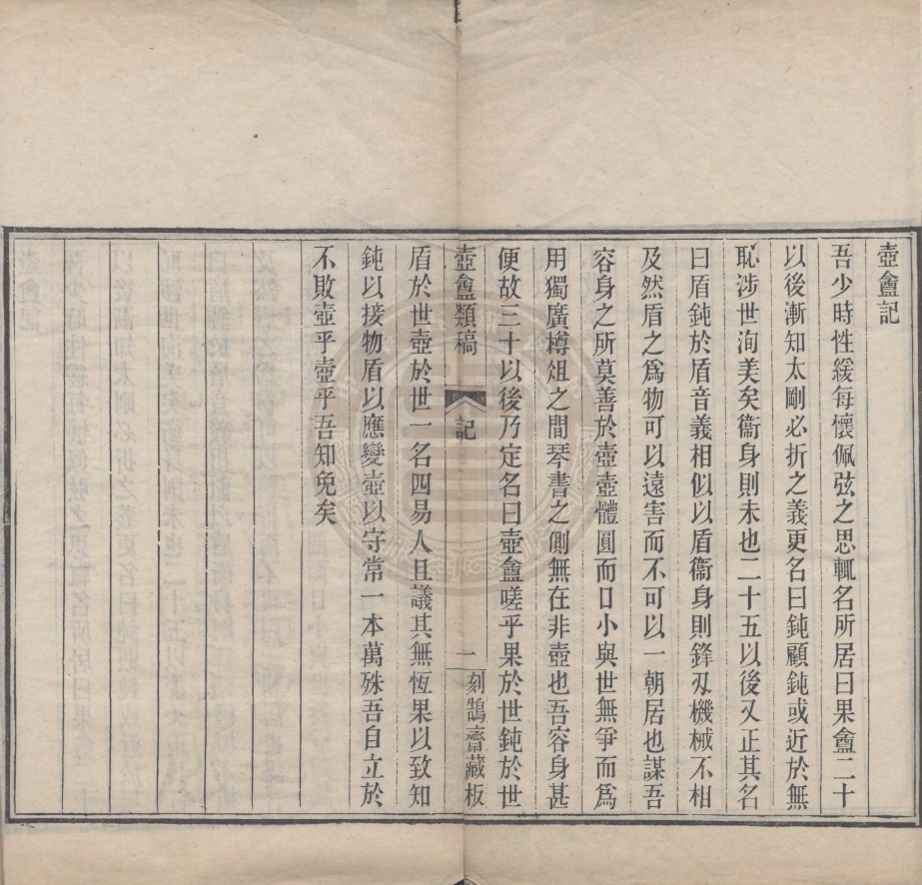 壺盦記
吾少時性緩每懷佩弦之思輒名所居曰果盦二十
以後漸知太剛必折之義更名曰鈍顧鈍或近於無
恥涉世洵美矣衞身則未也二十五以後又正其名
曰盾鈍於盾音義相似以盾衞身則鋒刄機械不相
及然盾之爲物可以遠害而不可以一朝居也謀吾
容身之所莫善於壺壺體圓而口小與世無爭而爲
用獨廣樽俎之間琴書之側無在非壺也吾容身甚
便故三十以後乃定名曰壺盦嗟乎果於世鈍於世
壺盦類稿 記 一 刻鵠齋藏板
盾於世壺於世一名四易人且議其無恆果以致知
鈍以接物盾以應變壺以守常一本萬殊吾自立於
不敗壺乎壺乎吾知免矣